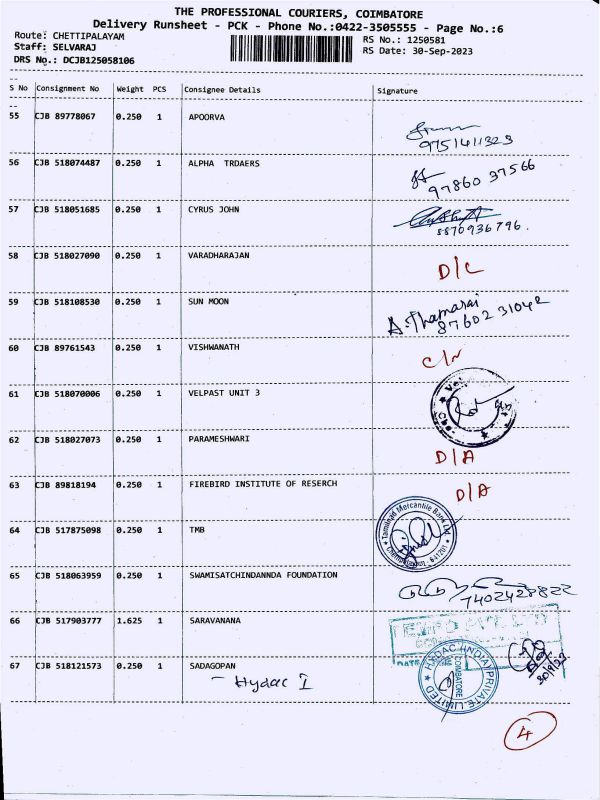 THE PROFESSIONAL COURIERS, COIMBATORE
Delivery Runsheet - PCK - Phone No.:0422-3505555 - Page No.:6
Route: CHETTIPALAYAM RS No.: 1250581
Staff: SELVARAJ RS Date: 30-Sep-2023
DRS No.: DCJB125058106
S No Consignment No Weight PCS Consignee Details Signature
55 CJB 89778067 0.250 1 APOORVA
9751411323
56 CJB 518074487 0.250 1 ALPHA TRDAERS
97860 37566
57 CJB 518051685 0.250 1 CYRUS JOHN
8870936796.
58 CJB 518027090 0.250 1 VARADHARAJAN D/C
59 CJB 518108530 0.250 1 SUN MOON A. Thamarai
87602 31042
60 CJB 89761543 0.250 1 VISHWANATH C/N
61 CJB 518070006 0.250 1 VELPAST UNIT 3
62 CJB 518027073 0.250 1 PARAMESHWARI D/A
63 CJB 89818194 0.250 1 FIREBIRD INSTITUTE OF RESERCH D/A
64 CJB 517875098 0.250 1 TMB Tamilnad Mercantile Bank Ltd
641201
65 CJB 518063959 0.250 1 SWAMISATCHINDANNDA FOUNDATION
7402428822
66 CJB 517903777 1.625 1 SARAVANANA
67 CJB 518121573 0.250 1 SADAGOPAN HYDAC (INDIA) PRIVATE LIMITED
COIMBATORE
DATE
30/9/23
- Hydac I
4